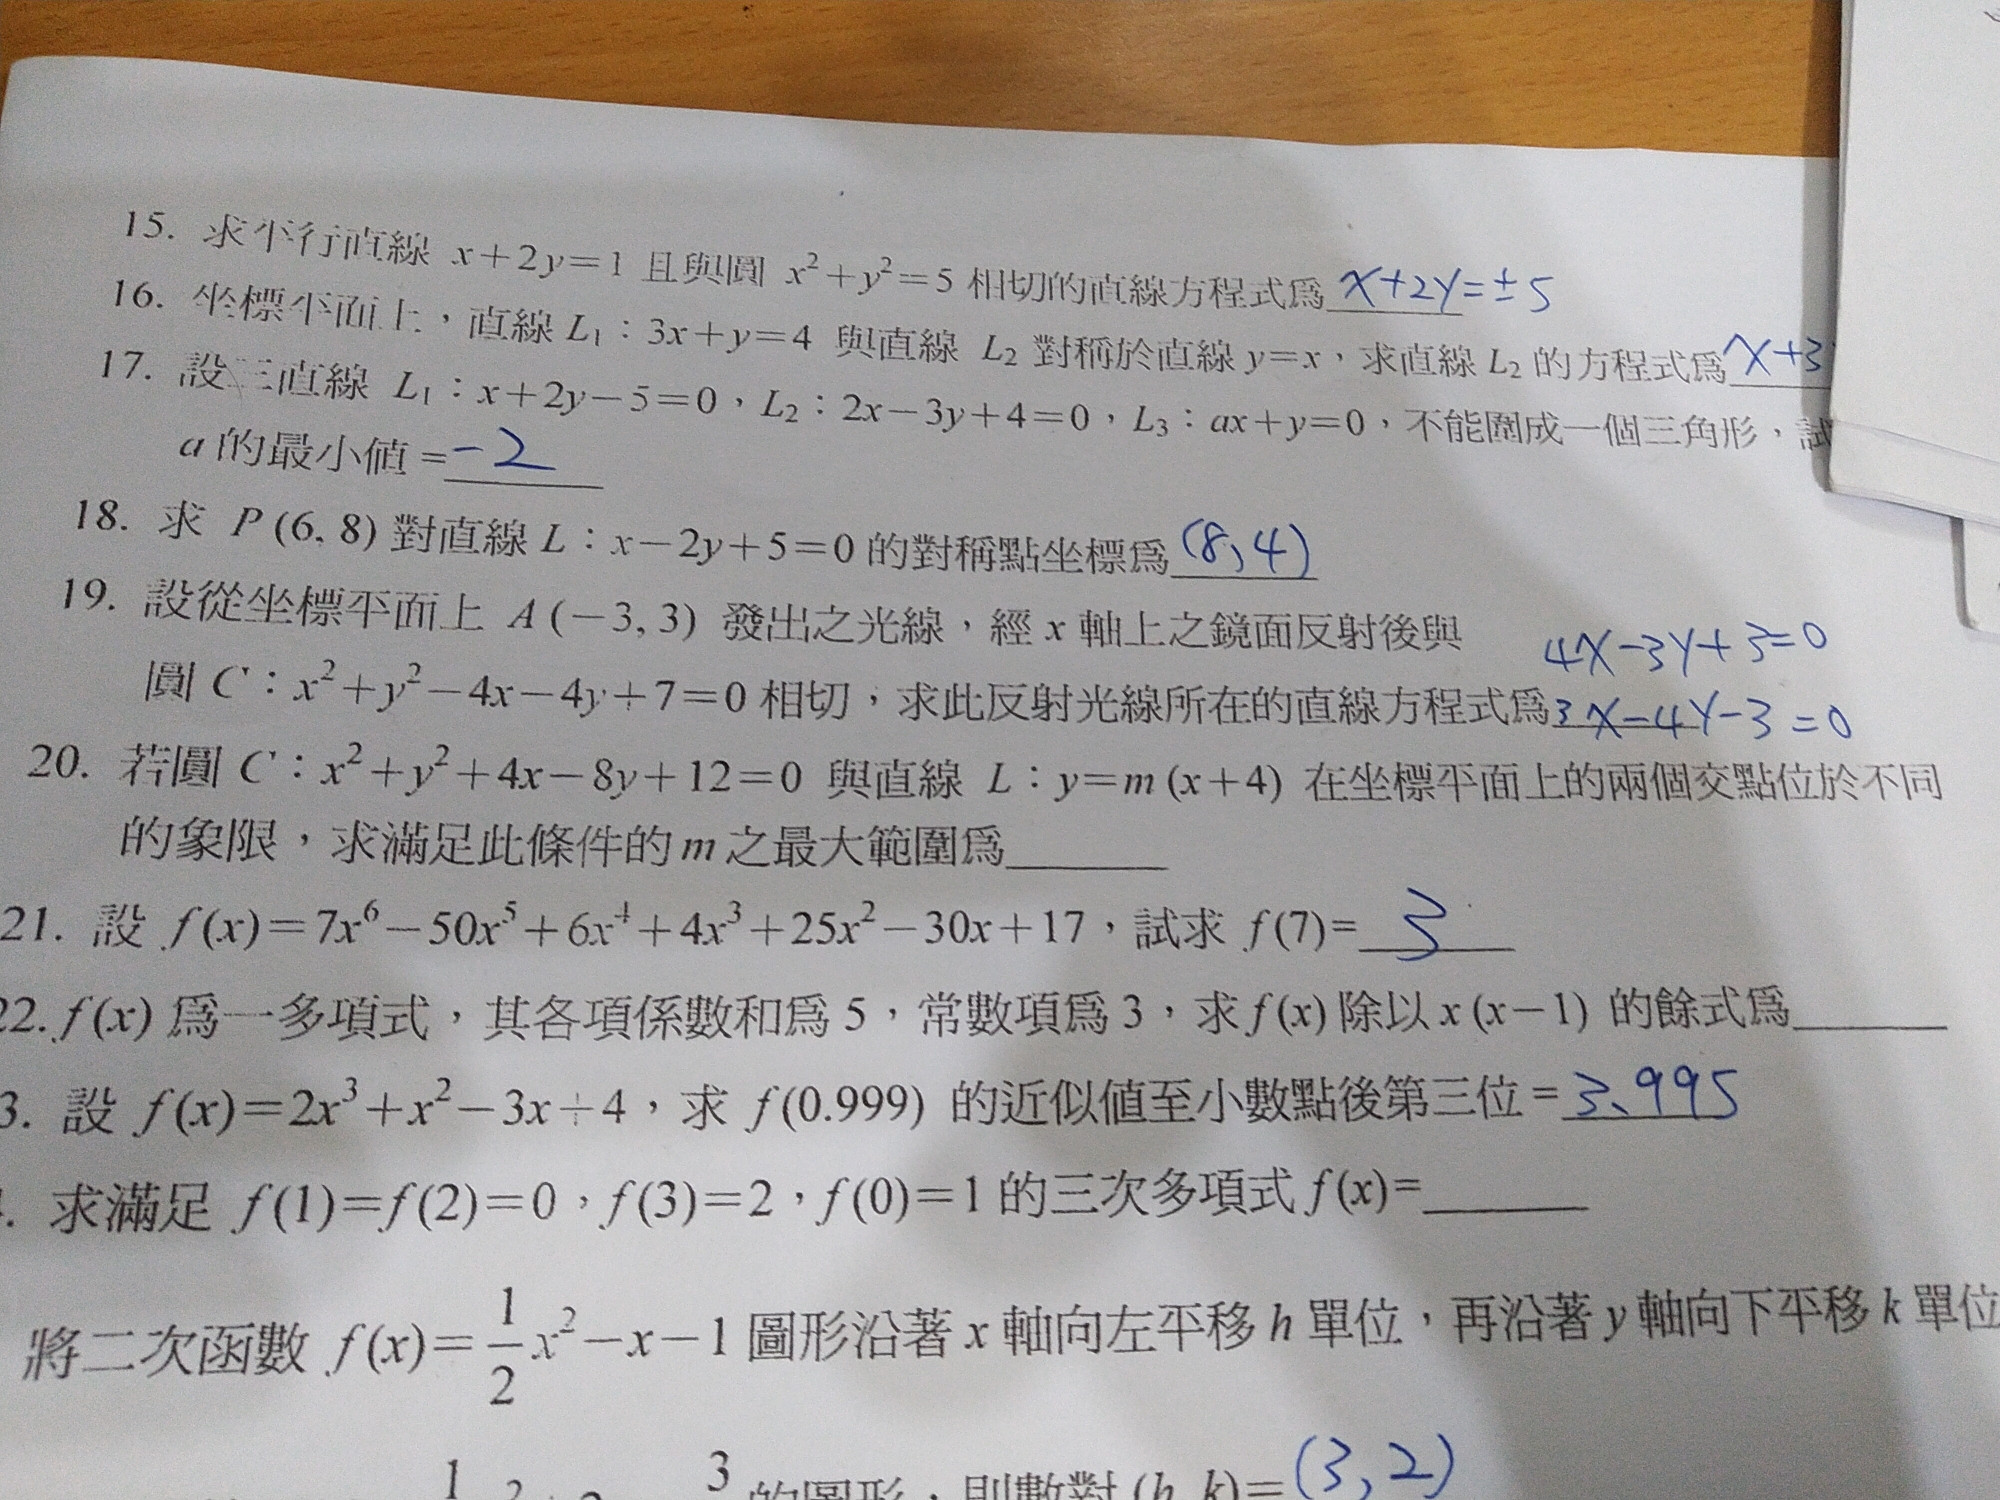 15. 求平行直線 x+2y=1 且與圓 x²+y²=5 相切的直線方程式為 x+2y=±5
16. 坐標平面上，直線 L₁：3x+y=4 與直線 L₂ 對稱於直線 y=x，求直線 L₂ 的方程式為 x+3
17. 設三直線 L₁：x+2y−5=0，L₂：2x−3y+4=0，L₃：ax+y=0，不能圍成一個三角形，試
a 的最小值 = -2
18. 求 P (6, 8) 對直線 L：x−2y+5=0 的對稱點坐標為 (8,4)
19. 設從坐標平面上 A (−3, 3) 發出之光線，經 x 軸上之鏡面反射後與
4x-3y+3=0
圓 C：x²+y²−4x−4y+7=0 相切，求此反射光線所在的直線方程式為 3x-4y-3=0
20. 若圓 C：x²+y²+4x−8y+12=0 與直線 L：y=m (x+4) 在坐標平面上的兩個交點位於不同
的象限，求滿足此條件的 m 之最大範圍為
21. 設 f(x)=7x⁶−50x⁵+6x⁴+4x³+25x²−30x+17，試求 f(7)= 3
22. f(x) 為一多項式，其各項係數和為 5，常數項為 3，求 f(x) 除以 x (x−1) 的餘式為
3. 設 f(x)=2x³+x²−3x+4，求 f(0.999) 的近似值至小數點後第三位 = 3.995
. 求滿足 f(1)=f(2)=0，f(3)=2，f(0)=1 的三次多項式 f(x)=
將二次函數 f(x)=1/2x²−x−1 圖形沿著 x 軸向左平移 h 單位，再沿著 y 軸向下平移 k 單位
的圖形，則數對 (h, k)= (3,2)